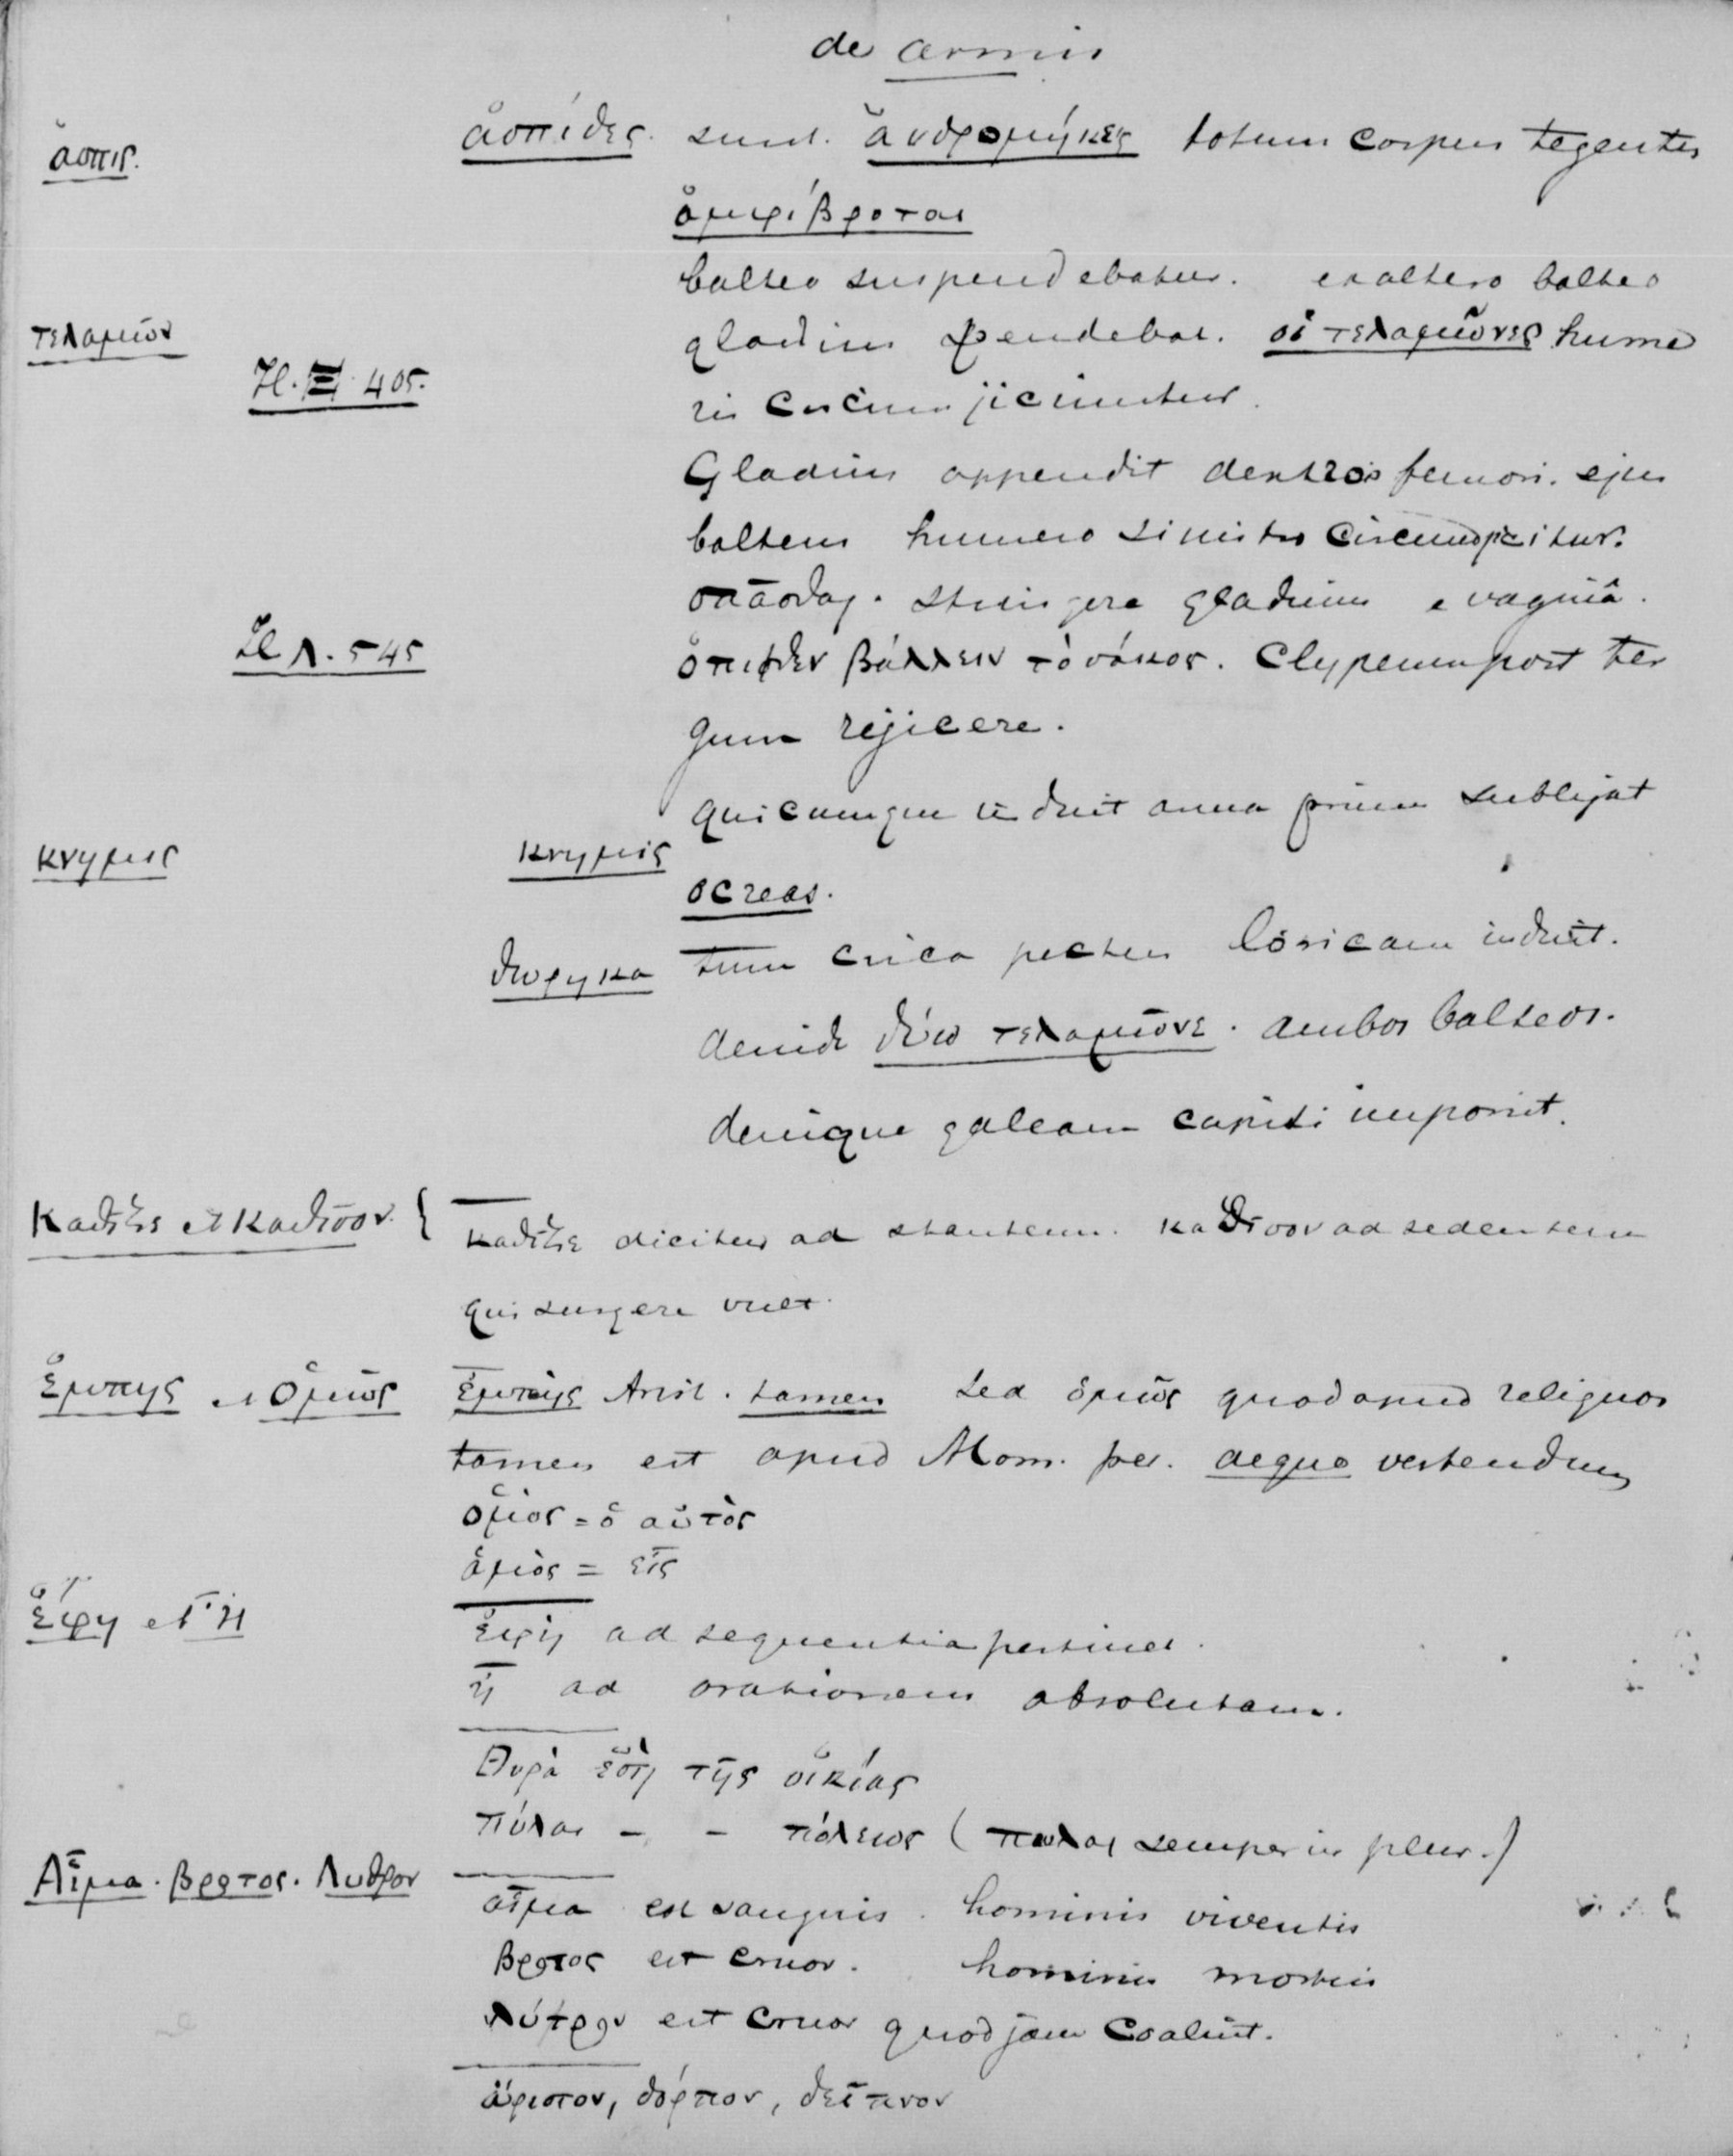 de armis
ἀσπις.
ἀσπίδες. sunt. ἀνδρομήκεις totum corpus tegentes
ἀμφίβροται
balteo suspendebatur. ex altero balteo
τελαμών
gladius pendebat. οἱ τελαμῶνες hume
Il. Ξ 405.
ris circumjiciuntur.
Gladius appendit dextro femori. ejus
balteus humero sinistro circumjicitur.
σπάσθαι. stringere gladium e vaginâ.
Il Λ. 545
ὄπισθεν βάλλειν τὸ σάκος. Clypeum post ter
gum rejicere.
quicumque induit arma primum subligat
κνημις
κνημὶς
ocreas.
θωρηκα
tum circa pectus loricam induit.
deinde δύω τελαμῶνε. ambos balteos.
denique galeam capiti imponit.
Καθῖζε et Καθῖσον. {
καθῖζε dicitur ad stantem. καθῖσον ad sedentem
qui surgere vult.
ἔμπης et Ὁμῶς
ἔμπης tamen sed ὁμῶς quod apud reliquos
tamen est apud Hom. per. aeque vertendum
ὁμὸς = ὁ αὐτὸς
ἁμὸς = εἷς
ἔφη et ἦ
ἔφη ad sequentia pertinet.
ἦ ad orationem absolutam.
Θυρὰ ἐστὶ τῆς οἰκίας
πύλαι - - πόλεως (πυλαι semper in plur.)
Αἷμα. βροτος. Λυθρον
αἷμα est sanguis. hominis viventis
βροτος est cruor. hominis mortui
λύθρον est cruor quod jam coaluit.
ἄριστον, δόρπον, δεῖπνον